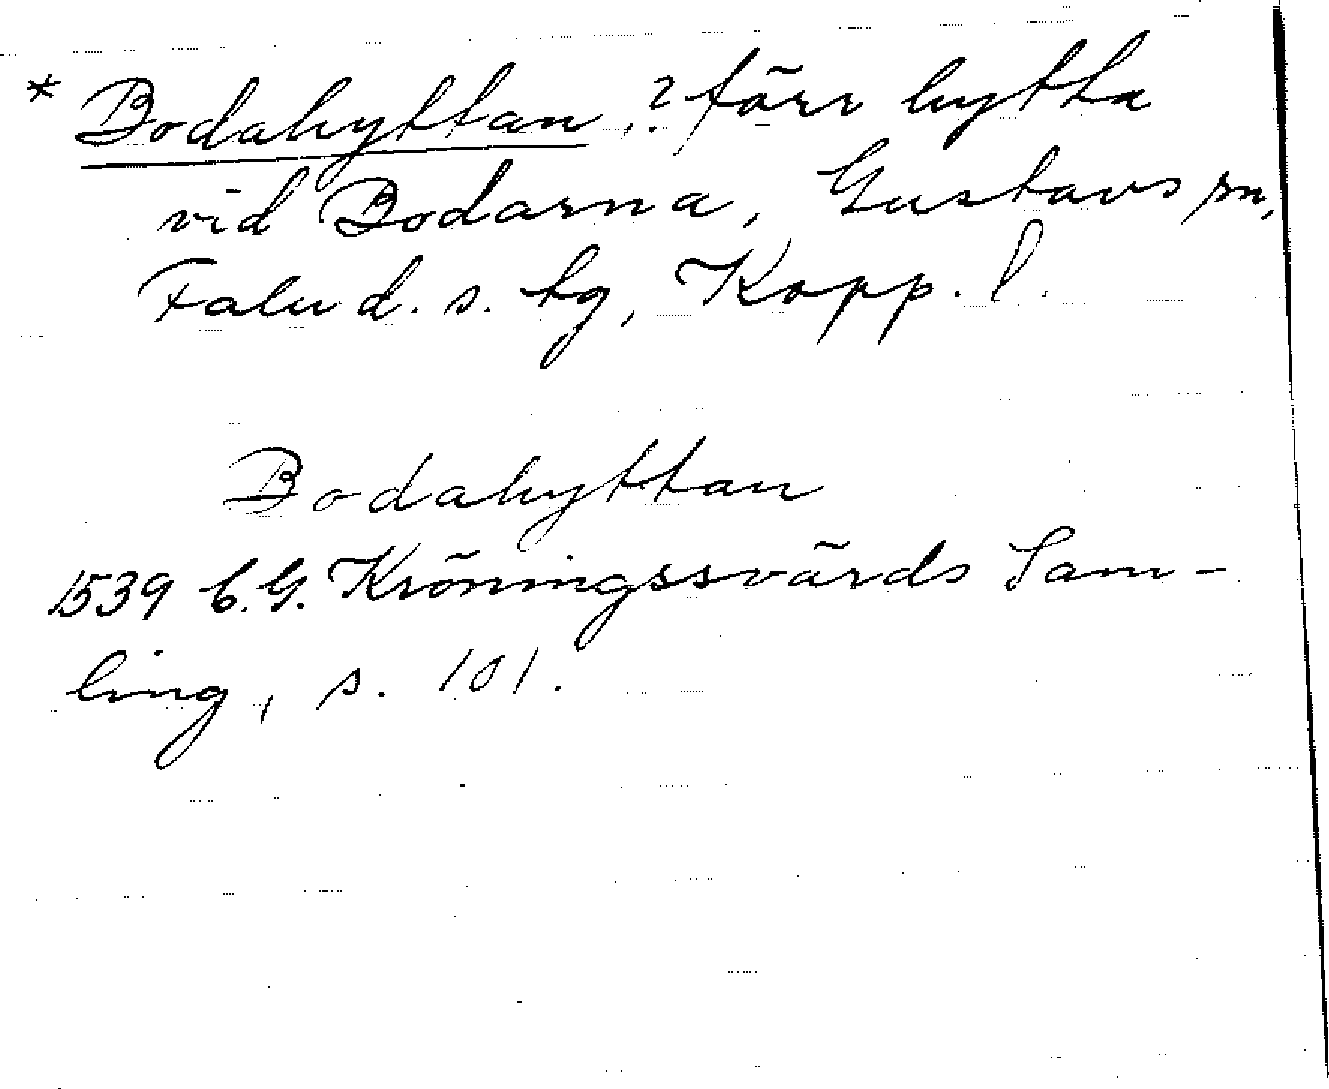 * Bodahyttan, ? förr hytta
vid Bodarna, Gustavs sn,
Falu d. s. tg, Kopp. l.
Bodahyttan
1539 C.G. Kröningssvärds Sam-
ling, s. 101.